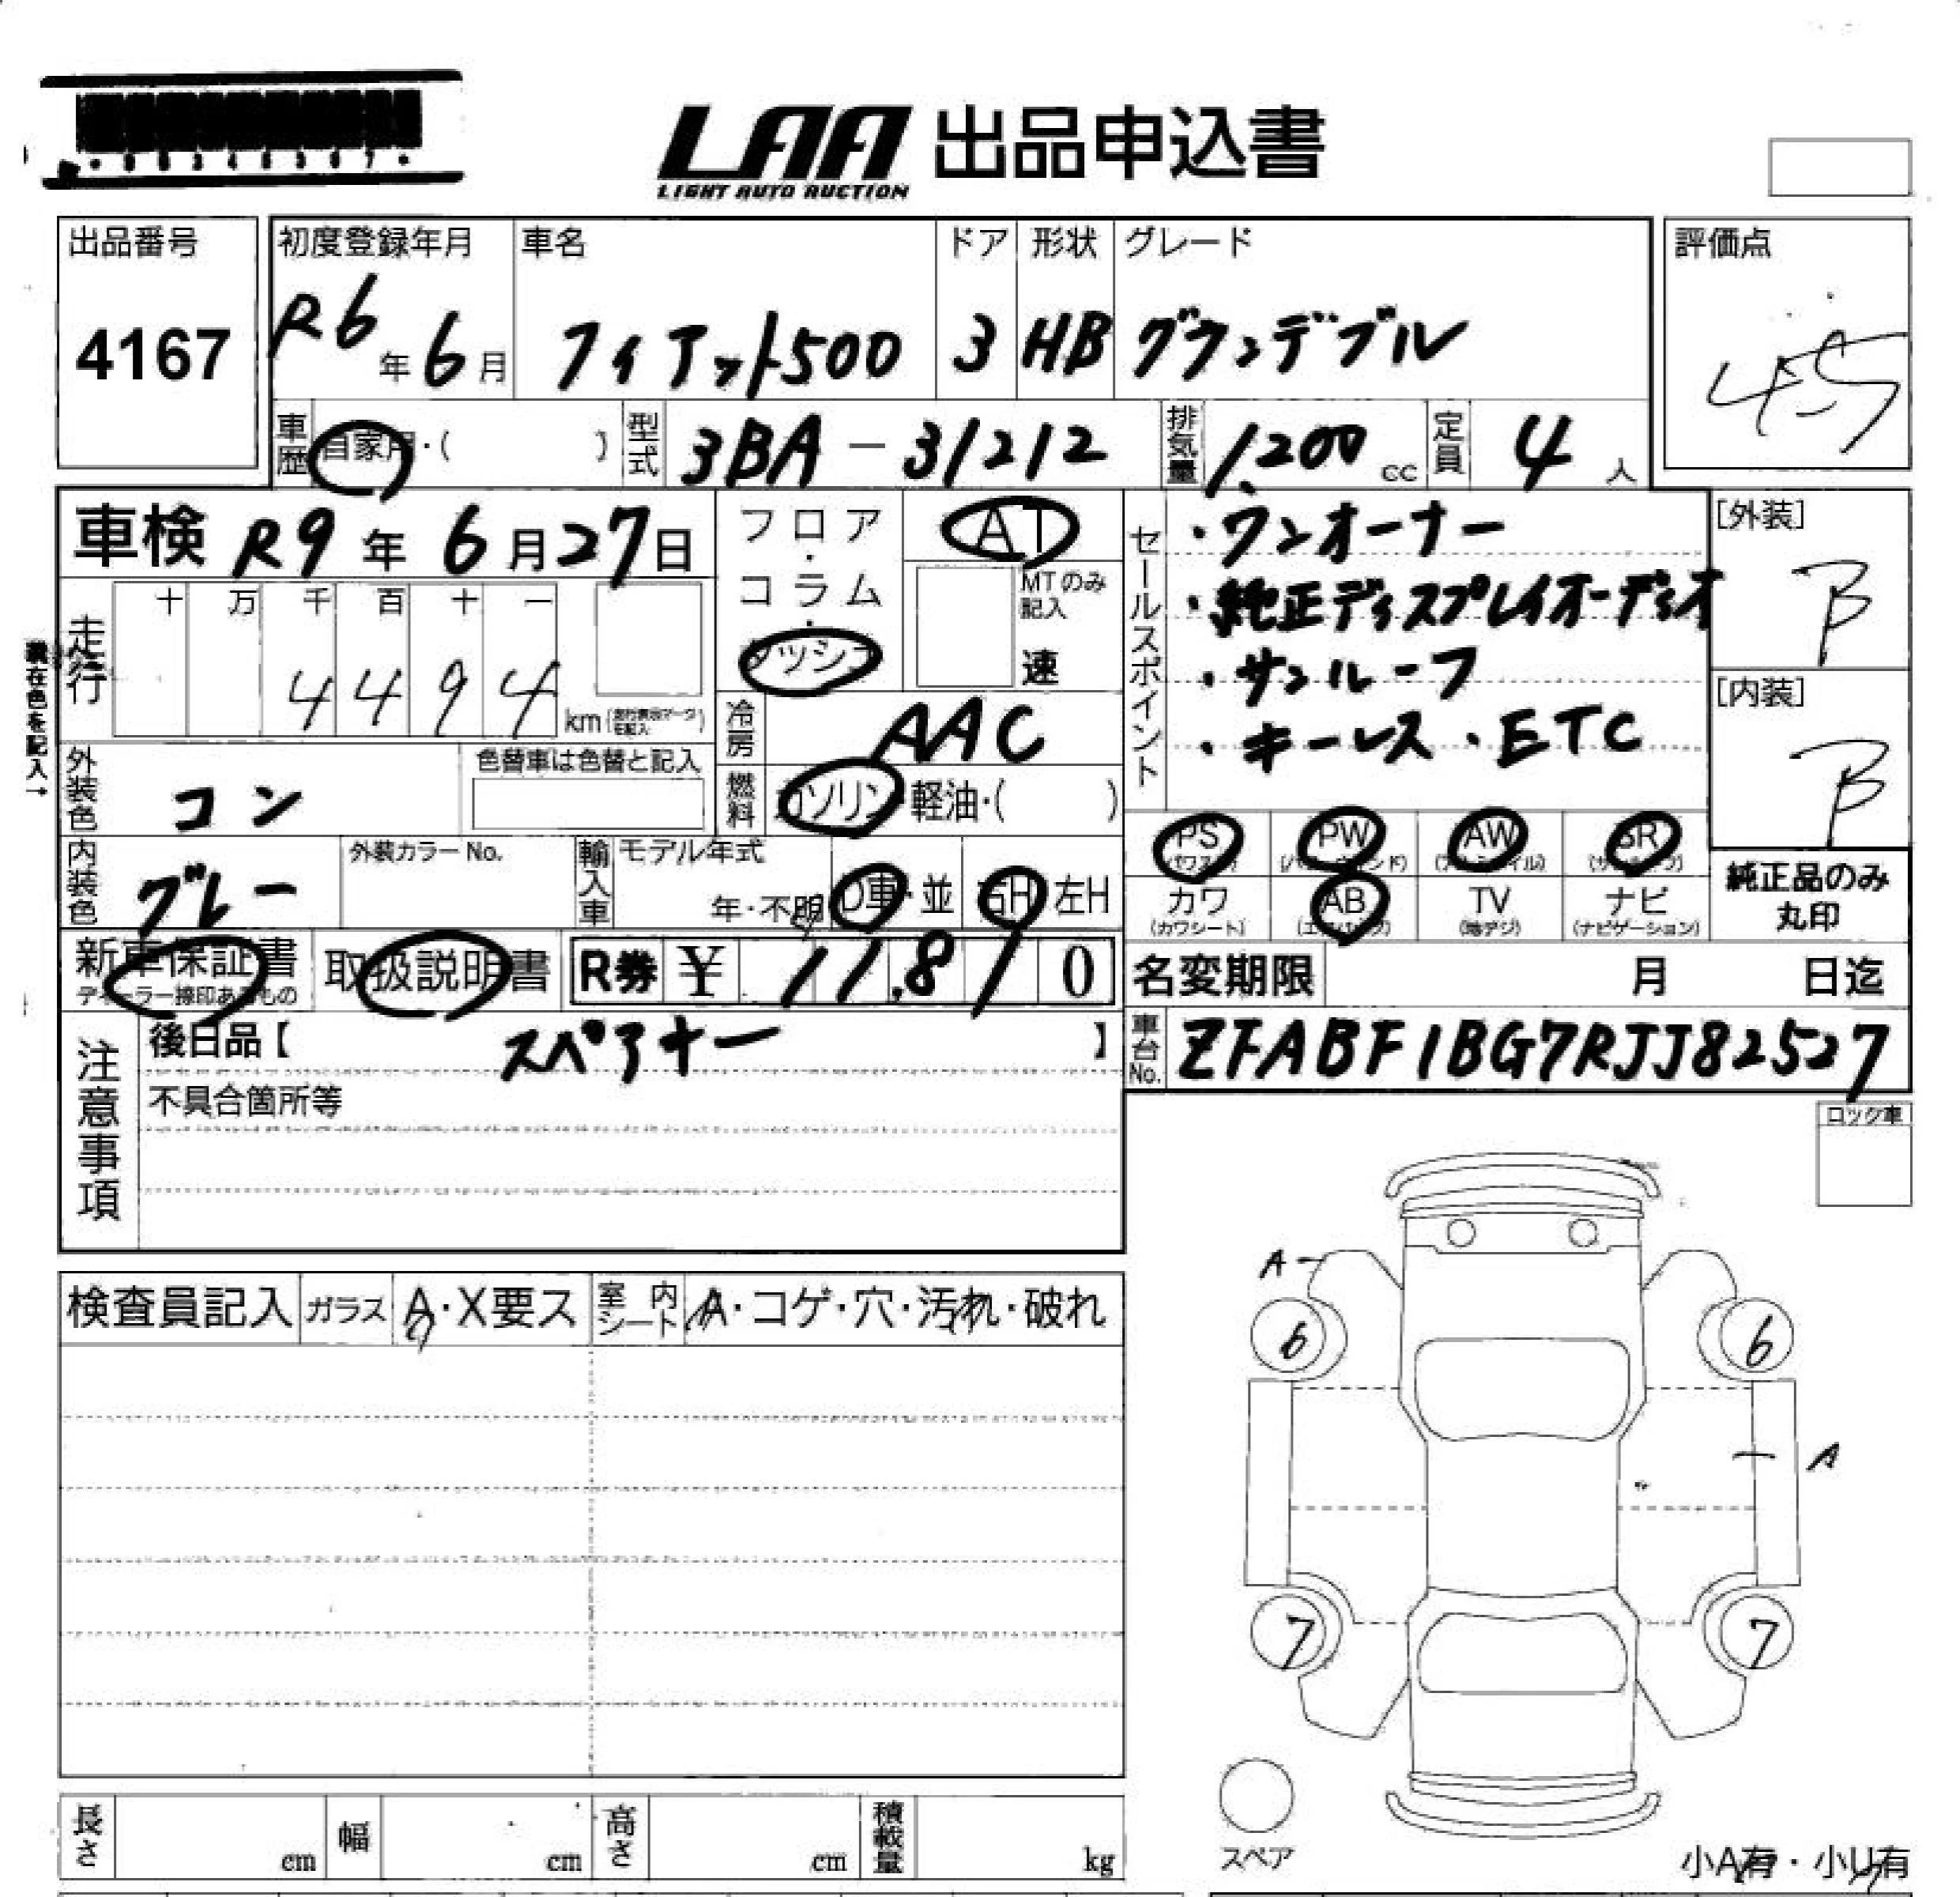 LAA 出品申込書
LIGHT AUTO AUCTION
出品番号
4167
初度登録年月
R6年6月
車名
フィアット500
ドア
3
形状
HB
グレード
グランデブル
評価点
4.5
車歴 自家用・( )
型式 3BA-31212
排気量 1,200cc
定員 4人
車検 R9年6月27日
フロア・コラム・ダッシュ
AT
MTのみ記入
速
セールスポイント
・ワンオーナー
・純正ディスプレイオーディオ
・サンルーフ
・キーレス・ETC
[外装]
B
[内装]
B
走行
十 万 千 百 十 一
4 4 9 4 km
現在色を記入→
冷房 AAC
燃料 ガソリン・軽油・( )
外装色 コン
色替車は色替と記入
内装色 グレー
外装カラーNo.
輸入車 モデル年式
年・不明
D車・並
右H 左H
PS PW AW SR
カワ AB TV ナビ
(カワシート) (エアバッグ) (地デジ) (ナビゲーション)
純正品のみ
丸印
新車保証書
ディーラー捺印あるもの
取扱説明書
R券 ¥ 11,890
名変期限 月 日迄
注意事項
後日品【 スペアキー 】
不具合箇所等
車台No. ZFABF1BG7RJJ82527
ロック車
検査員記入
ガラス A・X要ス
室内シート A・コゲ・穴・汚れ・破れ
A
6 6
A
7 7
スペア
小A有・小U有
長さ cm
幅 cm
高さ cm
積載量 kg